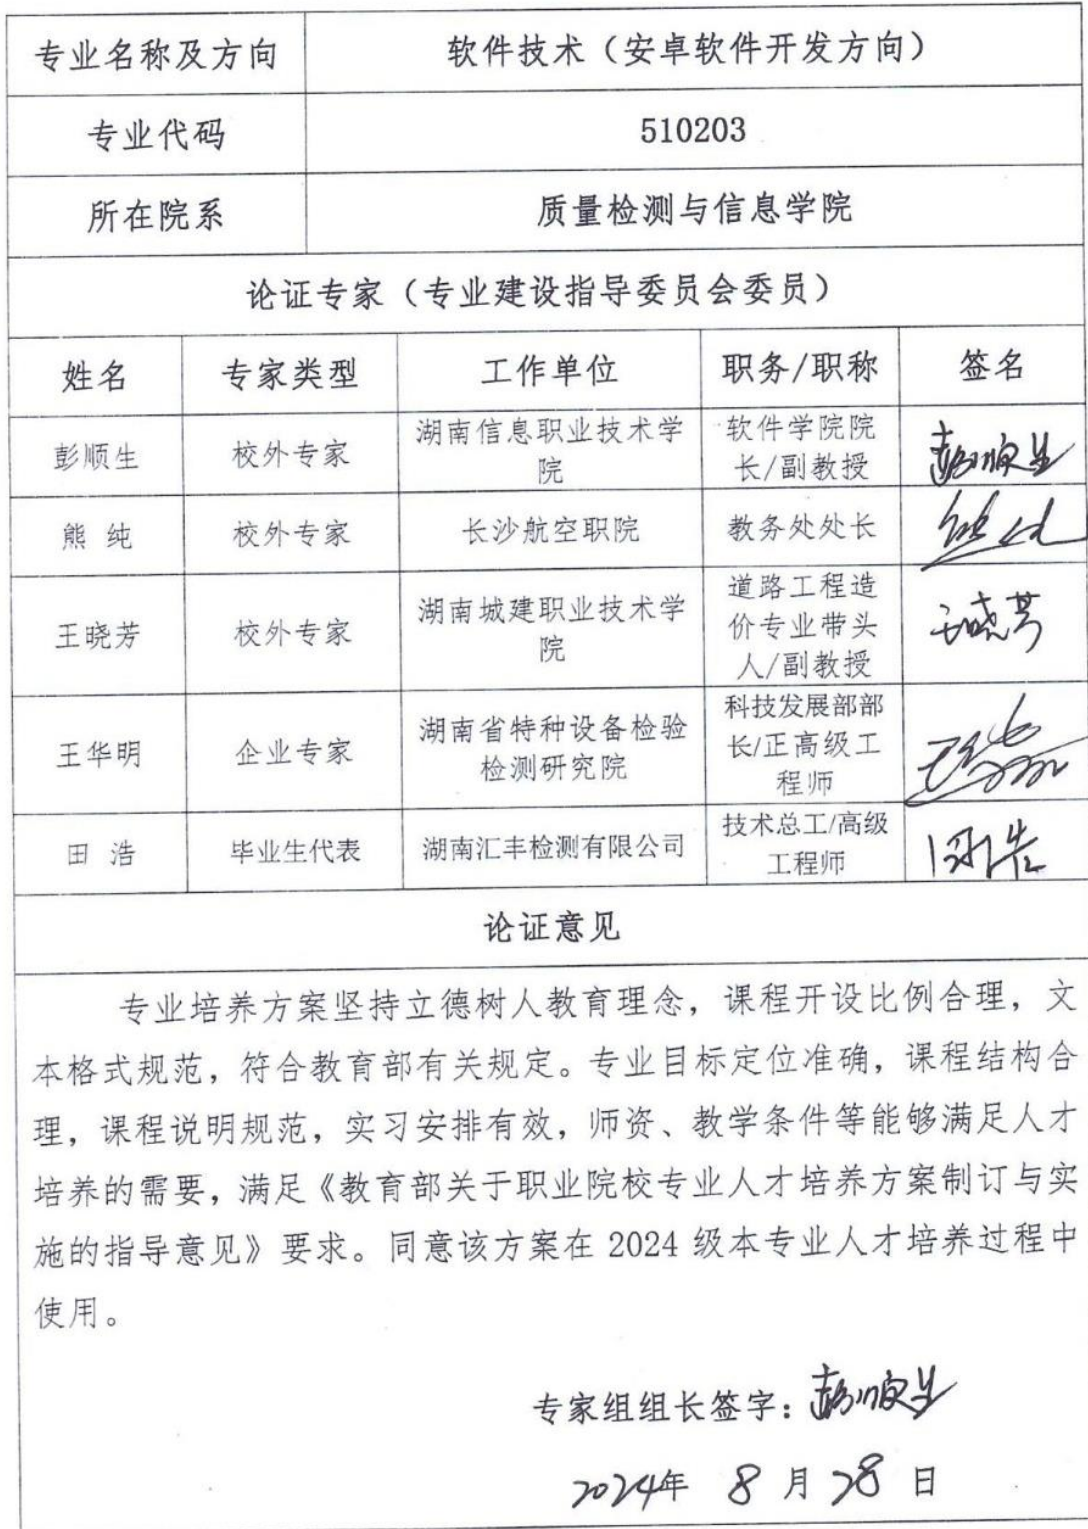 专业名称及方向 软件技术（安卓软件开发方向）
专业代码 510203
所在院系 质量检测与信息学院
论证专家（专业建设指导委员会委员）
姓名 专家类型 工作单位 职务/职称 签名
彭顺生 校外专家 湖南信息职业技术学
院 软件学院院
长/副教授 彭顺生
熊 纯 校外专家 长沙航空职院 教务处处长 熊纯
王晓芳 校外专家 湖南城建职业技术学
院 道路工程造
价专业带头
人/副教授 王晓芳
王华明 企业专家 湖南省特种设备检验
检测研究院 科技发展部部
长/正高级工
程师
田 浩 毕业生代表 湖南汇丰检测有限公司 技术总工/高级
工程师 田浩
论证意见
专业培养方案坚持立德树人教育理念，课程开设比例合理，文
本格式规范，符合教育部有关规定。专业目标定位准确，课程结构合
理，课程说明规范，实习安排有效，师资、教学条件等能够满足人才
培养的需要，满足《教育部关于职业院校专业人才培养方案制订与实
施的指导意见》要求。同意该方案在 2024 级本专业人才培养过程中
使用。
专家组组长签字：彭顺生
2024年 8 月 28 日